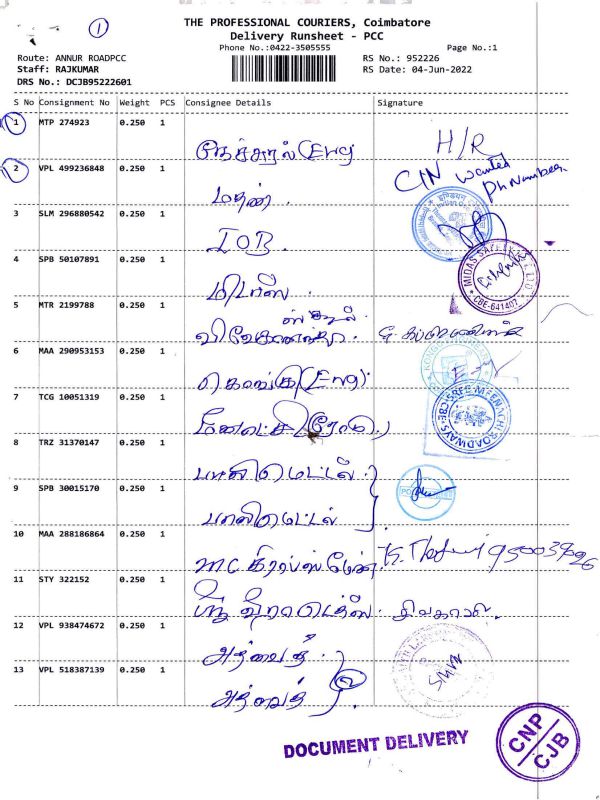 1
THE PROFESSIONAL COURIERS, Coimbatore
Delivery Runsheet - PCC
Phone No.:0422-3505555
Page No.:1
Route: ANNUR ROADPCC
RS No.: 952226
Staff: RAJKUMAR
RS Date: 04-Jun-2022
DRS No.: DCJB95222601
S No Consignment No Weight PCS Consignee Details Signature
1 MTP 274923 0.250 1
(Eng) H/R
2 VPL 499236848 0.250 1
CIN wanted
Ph Number
மதன்.
3 SLM 296880542 0.250 1
IOB.
4 SPB 50107891 0.250 1
மிடாஸ்.
CBE-641402
5 MTR 2199788 0.250 1
ஸ்கூல்.
விவேகானந்தா.
6 MAA 290953153 0.250 1
கொங்கு (Eng)
7 TCG 10051319 0.250 1
SREE MEENAKHI ROADWAYS CBE
8 TRZ 31370147 0.250 1
பாலிமெட்டல்.
9 SPB 30015170 0.250 1
பாலிமெட்டல்
10 MAA 288186864 0.250 1
11 STY 322152 0.250 1
சிவகாமி.
12 VPL 938474672 0.250 1
அத்வைத்
13 VPL 518387139 0.250 1
அத்வைத்
2
DOCUMENT DELIVERY
CNP
CJB